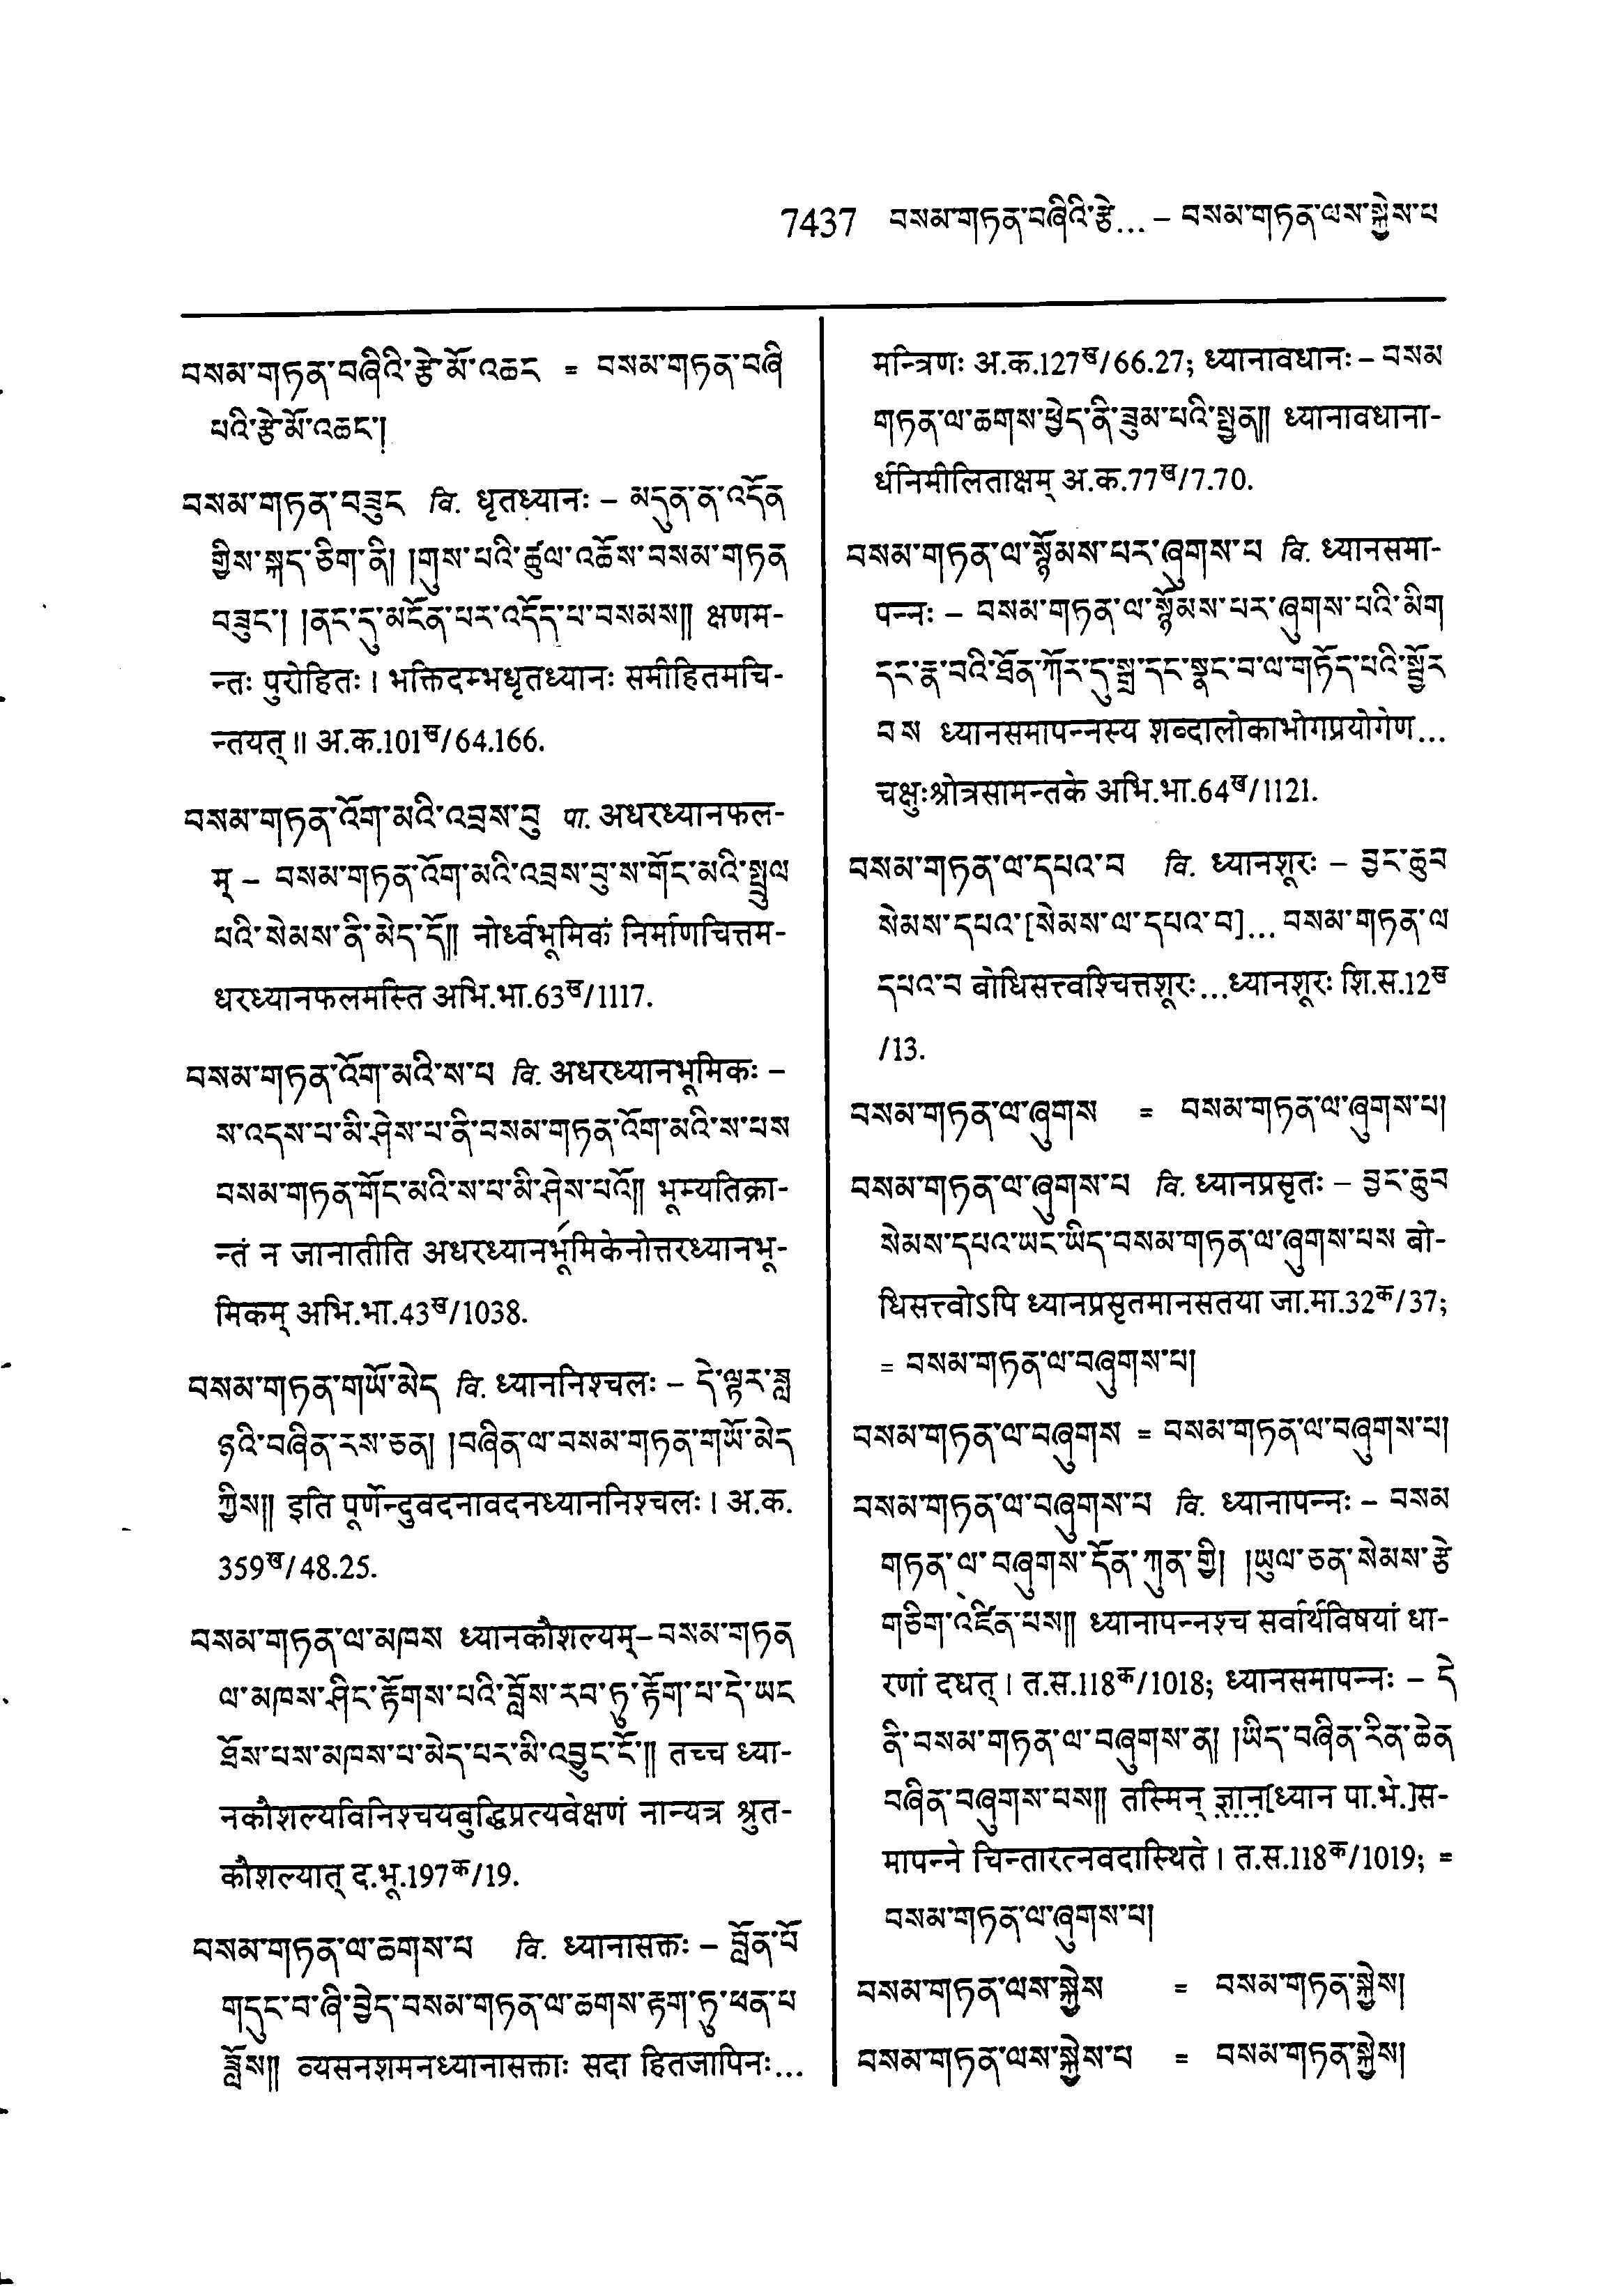 7437 བསམ་གཏན་བཞིའི་རྩེ... – བསམ་གཏན་ལས་སྐྱེས་པ
བསམ་གཏན་བཞིའི་རྩེ་མོ་འཆང = བསམ་གཏན་བཞི
པའི་རྩེ་མོ་འཆང་།
བསམ་གཏན་བཟུང वि. धृतध्यानः – མདུན་ན་འདོན
གྱིས་སྐད་ཅིག་ནི། །གུས་པའི་ཚུལ་འཆོས་བསམ་གཏན
བཟུང་། །ནང་དུ་མངོན་པར་འདོད་པ་བསམས།། क्षणम-
न्तः पुरोहितः । भक्तिदम्भधृतध्यानः समीहितमचि-
न्तयत् ॥ अ.क.101ख/64.166.
བསམ་གཏན་འོག་མའི་འབྲས་བུ पा. अधरध्यानफल-
म् – བསམ་གཏན་འོག་མའི་འབྲས་བུ་ས་གོང་མའི་སྤྲུལ
པའི་སེམས་ནི་མེད་དོ།། नोर्ध्वभूमिकं निर्माणचित्तम-
धरध्यानफलमस्ति अभि.भा.63ख/1117.
བསམ་གཏན་འོག་མའི་ས་པ वि. अधरध्यानभूमिकः –
ས་འདས་པ་མི་ཤེས་པ་ནི་བསམ་གཏན་འོག་མའི་ས་པས
བསམ་གཏན་གོང་མའི་ས་པ་མི་ཤེས་པའོ།། भूम्यतिक्रा-
न्तं न जानातीति अधरध्यानभूमिकेनोत्तरध्यानभू-
मिकम् अभि.भा.43ख/1038.
བསམ་གཏན་གཡོ་མེད वि. ध्याननिश्चलः – དེ་ལྟར་ཟླ
ཉའི་བཞིན་རས་ཅན། །བཞིན་ལ་བསམ་གཏན་གཡོ་མེད
ཀྱིས།། इति पूर्णेन्दुवदनावदनध्याननिश्चलः । अ.क.
359ख/48.25.
བསམ་གཏན་ལ་མཁས ध्यानकौशल्यम्– བསམ་གཏན
ལ་མཁས་ཤིང་རྟོགས་པའི་བློས་རབ་ཏུ་རྟོག་པ་དེ་ཡང
ཐོས་པས་མཁས་པ་མེད་པར་མི་འབྱུང་ངོ་།། तच्च ध्या-
नकौशल्यविनिश्चयबुद्धिप्रत्यवेक्षणं नान्यत्र श्रुत-
कौशल्यात् द.भू.197क/19.
བསམ་གཏན་ལ་ཆགས་པ वि. ध्यानासक्तः – བློན་པོ
གདུང་བ་ཞི་བྱེད་བསམ་གཏན་ལ་ཆགས་རྟག་ཏུ་ཕན་པ
བློས།། व्यसनशमनध्यानासक्ताः सदा हितजापिनः...
मन्त्रिणः अ.क.127ख/66.27; ध्यानावधानः – བསམ
གཏན་ལ་ཆགས་ཕྱེད་ནི་ཟུམ་པའི་སྤྱན།། ध्यानावधाना-
र्धनिमीलिताक्षम् अ.क.77ख/7.70.
བསམ་གཏན་ལ་སྙོམས་པར་ཞུགས་པ वि. ध्यानसमा-
पन्नः – བསམ་གཏན་ལ་སྙོམས་པར་ཞུགས་པའི་མིག
དང་རྣ་བའི་ཐོན་ཀོར་དུ་སྒྲ་དང་སྣང་བ་ལ་གཏོད་པའི་སྦྱོར
བས ध्यानसमापन्नस्य शब्दालोकाभोगप्रयोगेण...
चक्षुःश्रोत्रसामन्तके अभि.भा.64ख/1121.
བསམ་གཏན་ལ་དཔའ་བ वि. ध्यानशूरः – བྱང་ཆུབ
སེམས་དཔའ་[སེམས་ལ་དཔའ་བ]... བསམ་གཏན་ལ
དཔའ་བ बोधिसत्त्वश्चित्तशूरः...ध्यानशूरः शि.स.12ख
/13.
བསམ་གཏན་ལ་ཞུགས = བསམ་གཏན་ལ་ཞུགས་པ།
བསམ་གཏན་ལ་ཞུགས་པ वि. ध्यानप्रसृतः – བྱང་ཆུབ
སེམས་དཔའ་ཡང་ཡིད་བསམ་གཏན་ལ་ཞུགས་པས बो-
धिसत्त्वोऽपि ध्यानप्रसृतमानसतया जा.मा.32क/37;
= བསམ་གཏན་ལ་བཞུགས་པ།
བསམ་གཏན་ལ་བཞུགས = བསམ་གཏན་ལ་བཞུགས་པ།
བསམ་གཏན་ལ་བཞུགས་པ वि. ध्यानापन्नः – བསམ
གཏན་ལ་བཞུགས་དོན་ཀུན་གྱི། །ཡུལ་ཅན་སེམས་རྩེ
གཅིག་འཛིན་པས།། ध्यानापन्नश्च सर्वार्थविषयां धा-
रणां दधत् । त.स.118क/1018; ध्यानसमापन्नः – དེ
ནི་བསམ་གཏན་ལ་བཞུགས་ན། །ཡིད་བཞིན་རིན་ཆེན
བཞིན་བཞུགས་པས།། तस्मिन् ज्ञान[ध्यान पा.भे.]स-
मापन्ने चिन्तारत्नवदास्थिते । त.स.118क/1019; =
བསམ་གཏན་ལ་ཞུགས་པ།
བསམ་གཏན་ལས་སྐྱེས = བསམ་གཏན་སྐྱེས།
བསམ་གཏན་ལས་སྐྱེས་པ = བསམ་གཏན་སྐྱེས།